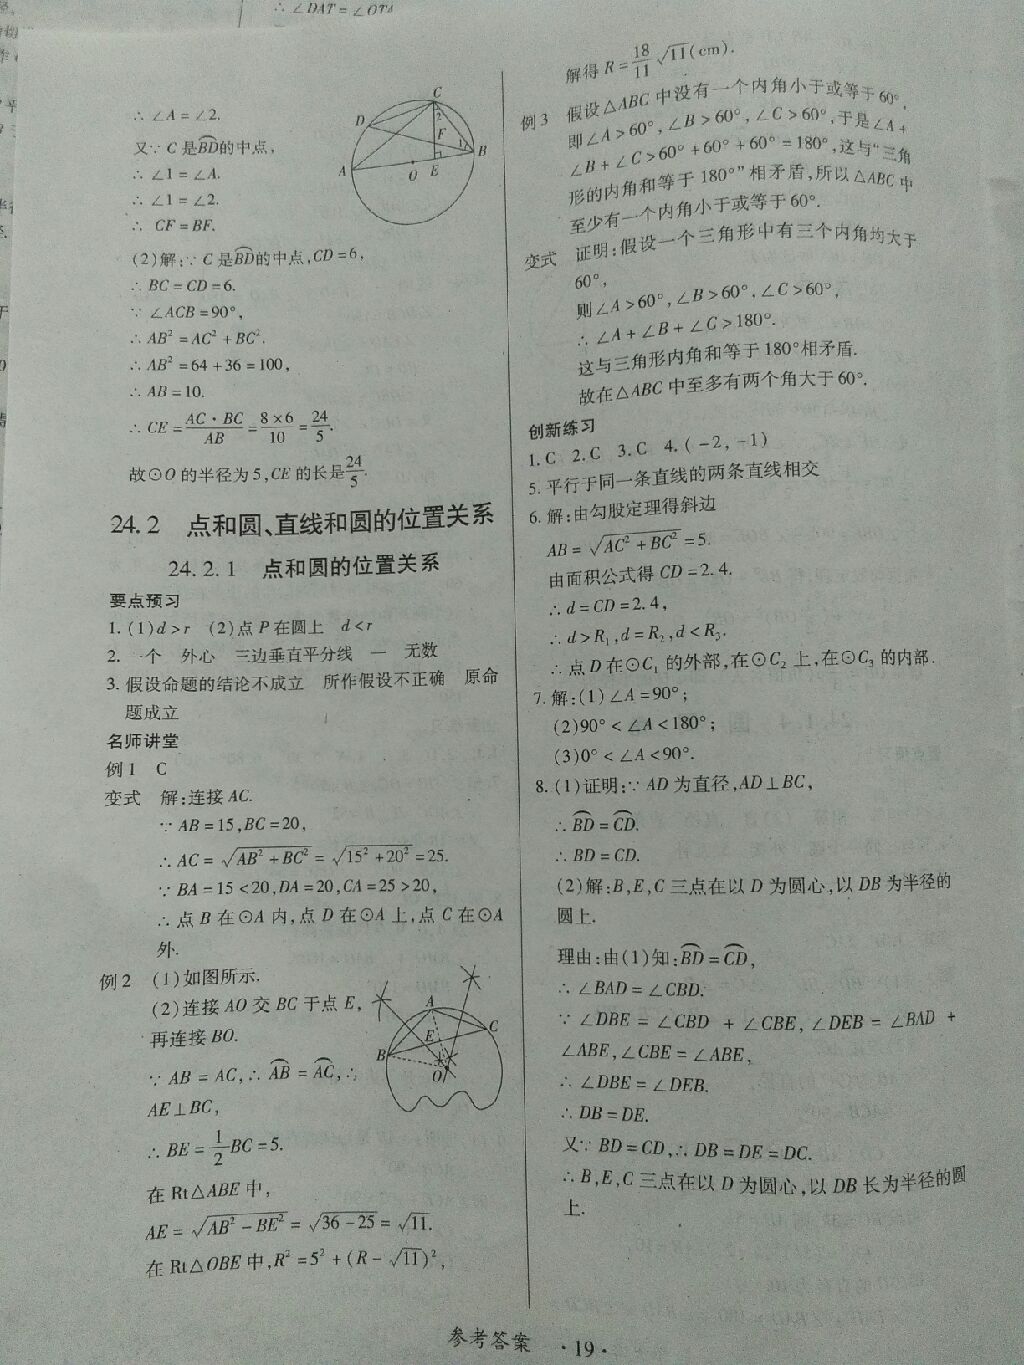 ∴ ∠DAT = ∠OTA
∴ ∠A = ∠2.
又∵ C 是BD的中点,
∴ ∠1 = ∠A.
∴ ∠1 = ∠2.
∴ CF = BF.
(2)解:∵ C 是BD的中点,CD = 6,
∴ BC = CD = 6.
∵ ∠ACB = 90°,
∴ AB² = AC² + BC².
∴ AB² = 64 + 36 = 100,
∴ AB = 10.
∴ CE = AC·BC/AB = 8×6/10 = 24/5.
故⊙O 的半径为 5,CE 的长是24/5.
24.2 点和圆、直线和圆的位置关系
24.2.1 点和圆的位置关系
要点预习
1. (1)d>r (2)点 P 在圆上 d<r
2. 一个 外心 三边垂直平分线 一 无数
3. 假设命题的结论不成立 所作假设不正确 原命
题成立
名师讲堂
例1 C
变式 解:连接 AC.
∵ AB = 15,BC = 20,
∴ AC = √(AB² + BC²) = √(15² + 20²) = 25.
∵ BA = 15 < 20,DA = 20,CA = 25 > 20,
∴ 点 B 在⊙A 内,点 D 在⊙A 上,点 C 在⊙A
外.
例2 (1)如图所示.
(2)连接 AO 交 BC 于点 E,
再连接 BO.
∵ AB = AC,∴ AB = AC,∴
AE⊥BC,
∴ BE = 1/2 BC = 5.
在 Rt△ABE 中,
AE = √(AB² − BE²) = √(36 − 25) = √11.
在 Rt△OBE 中,R² = 5² + (R − √11)²,
解得 R = 18/11 √11(cm).
例3 假设△ABC 中没有一个内角小于或等于 60°,
即∠A > 60°,∠B > 60°,∠C > 60°,于是∠A +
∠B + ∠C > 60° + 60° + 60° = 180°,这与“三角
形的内角和等于 180°”相矛盾,所以△ABC 中
至少有一个内角小于或等于 60°.
变式 证明:假设一个三角形中有三个内角均大于
60°,
则∠A > 60°,∠B > 60°,∠C > 60°,
∴ ∠A + ∠B + ∠C > 180°.
这与三角形内角和等于 180°相矛盾.
故在△ABC 中至多有两个角大于 60°.
创新练习
1. C 2. C 3. C 4. (−2,−1)
5. 平行于同一条直线的两条直线相交
6. 解:由勾股定理得斜边
AB = √(AC² + BC²) = 5.
由面积公式得 CD = 2.4.
∴ d = CD = 2.4,
∴ d > R₁,d = R₂,d < R₃.
∴ 点 D 在⊙C₁ 的外部,在⊙C₂ 上,在⊙C₃ 的内部.
7. 解:(1)∠A = 90°;
(2)90° < ∠A < 180°;
(3)0° < ∠A < 90°.
8. (1)证明:∵ AD 为直径,AD⊥BC,
∴ BD = CD.
∴ BD = CD.
(2)解:B,E,C 三点在以 D 为圆心,以 DB 为半径的
圆上.
理由:由(1)知:BD = CD,
∴ ∠BAD = ∠CBD.
∵ ∠DBE = ∠CBD + ∠CBE,∠DEB = ∠BAD +
∠ABE,∠CBE = ∠ABE,
∴ ∠DBE = ∠DEB.
∴ DB = DE.
又∵ BD = CD,∴ DB = DE = DC.
∴ B,E,C 三点在以 D 为圆心,以 DB 长为半径的圆
上.
参考答案 ·19·